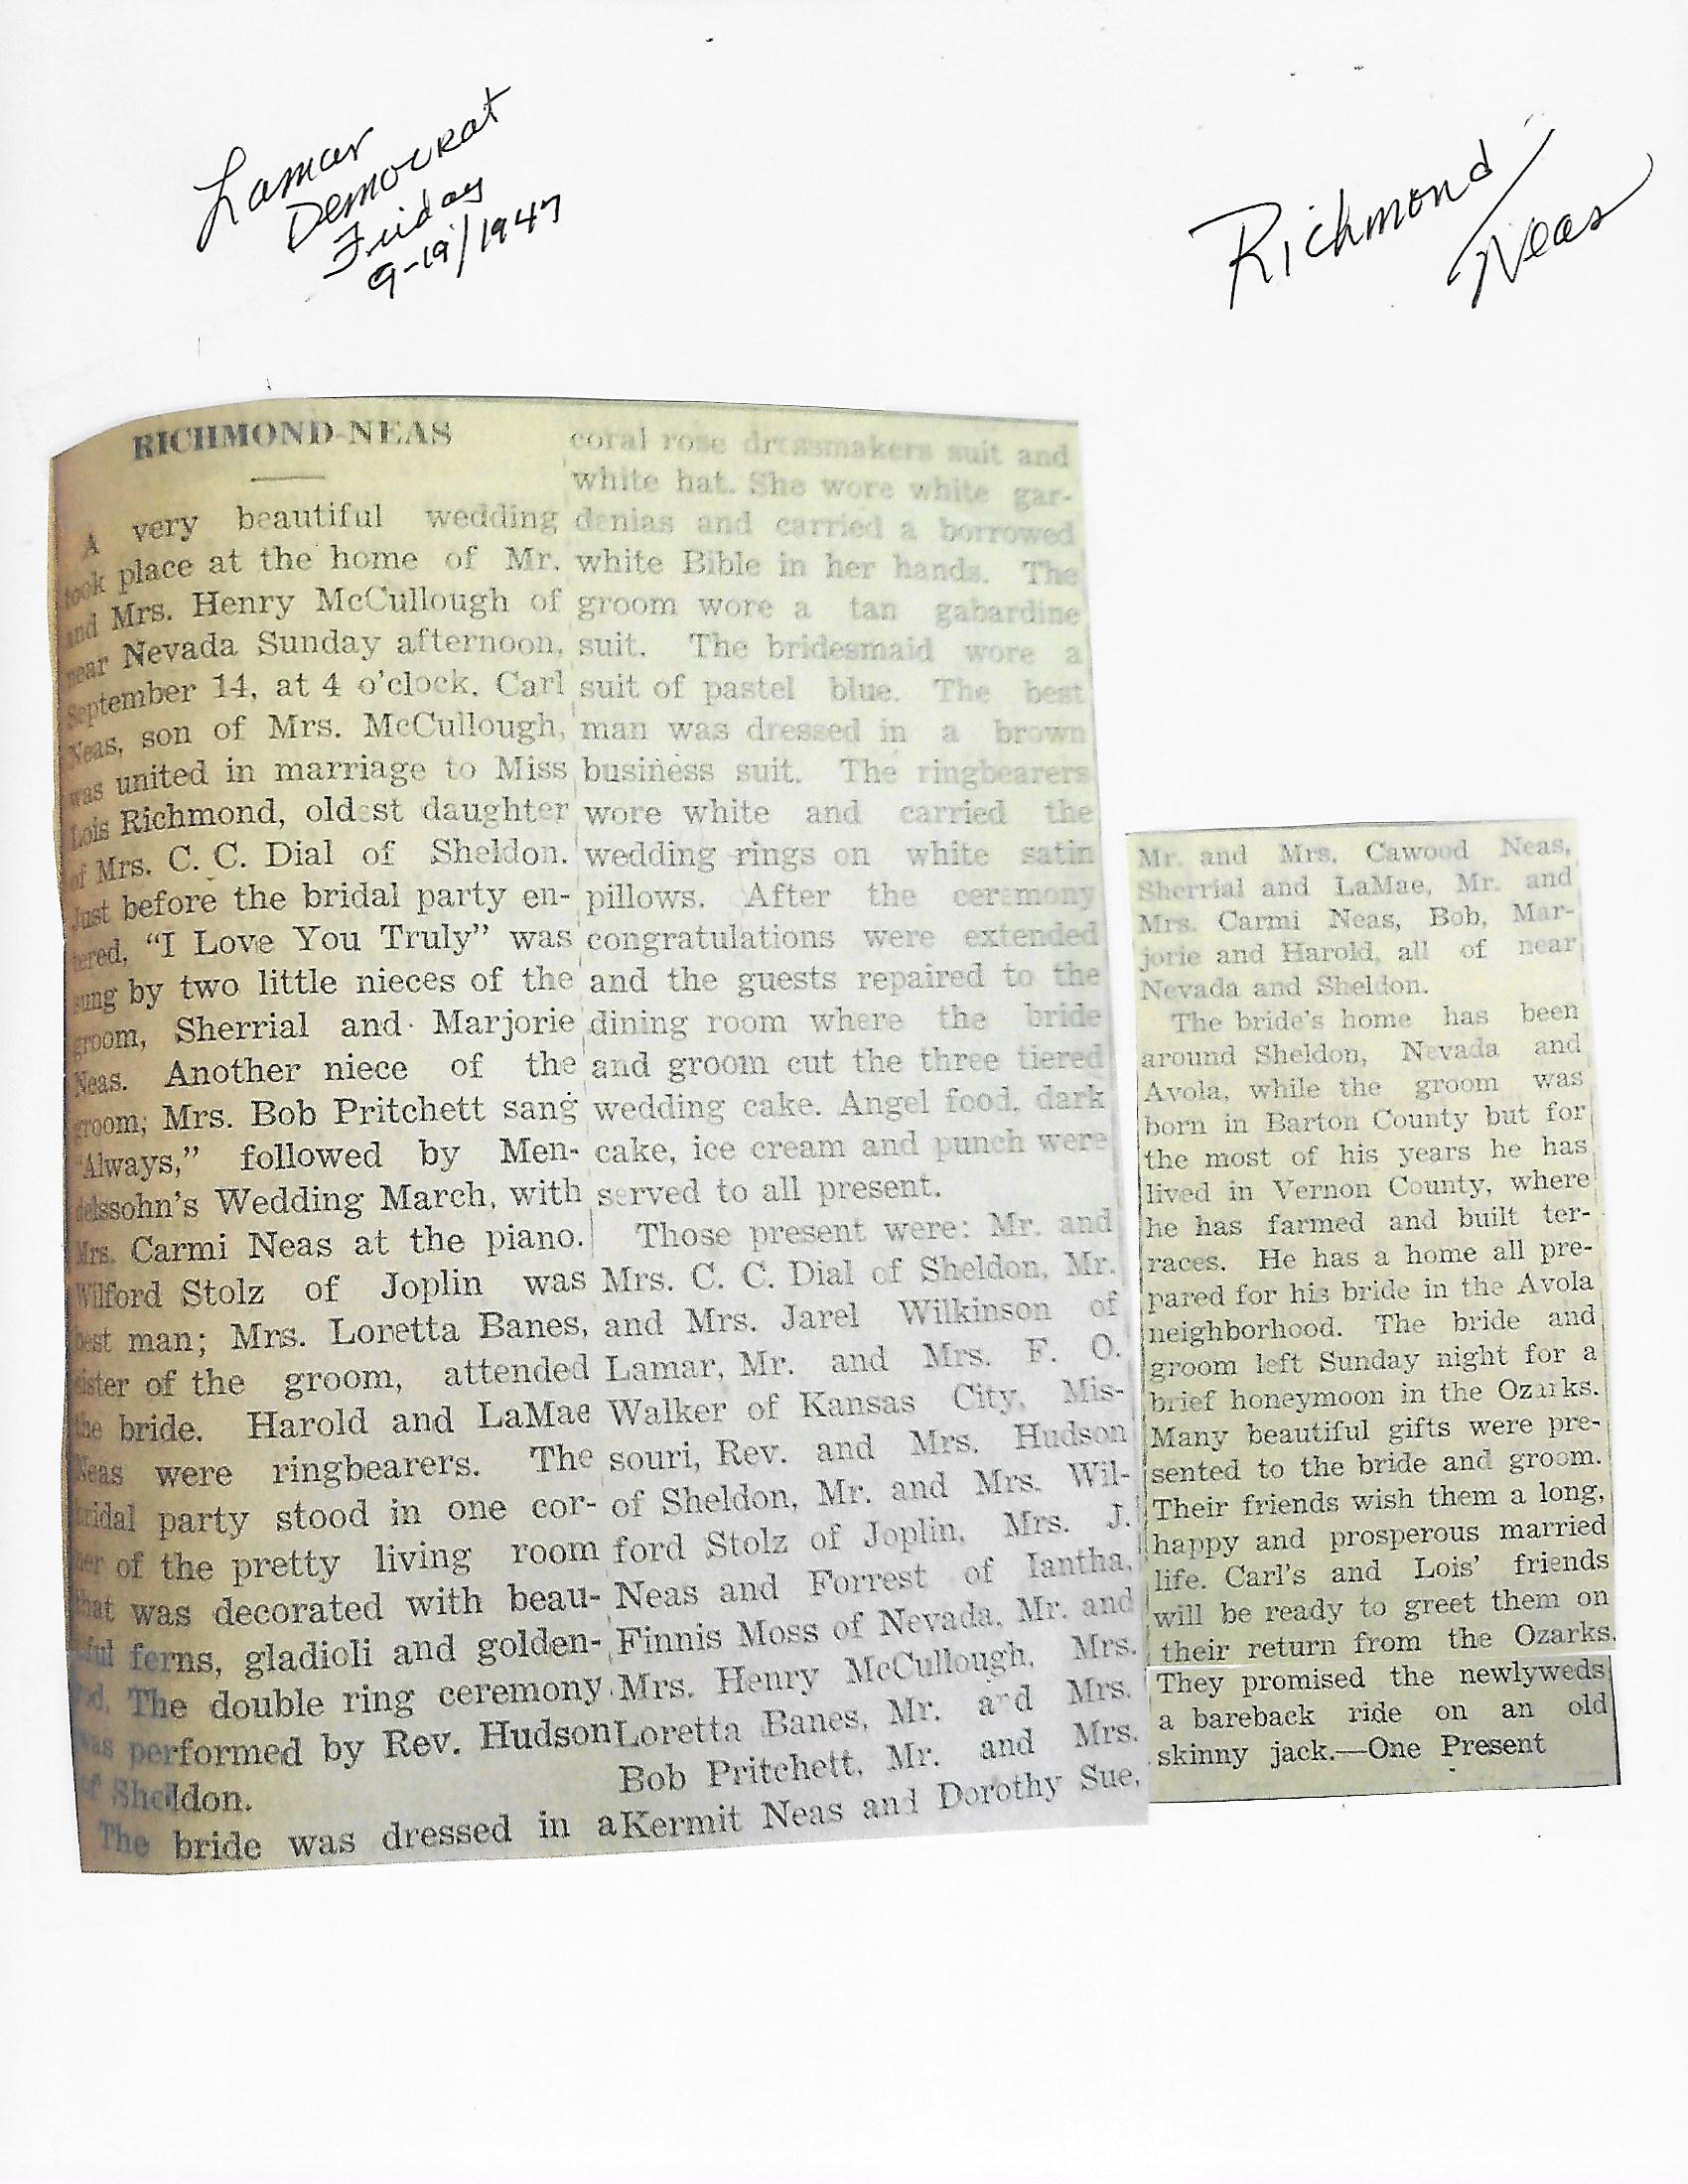 Lamar
Democrat
Friday
9-19/1947
Richmond/
Neas
RICHMOND-NEAS
A very beautiful wedding
took place at the home of Mr.
and Mrs. Henry McCullough of
near Nevada Sunday afternoon,
September 14, at 4 o'clock. Carl
Neas, son of Mrs. McCullough,
was united in marriage to Miss
Lois Richmond, oldest daughter
of Mrs. C. C. Dial of Sheldon.
Just before the bridal party en-
tered, "I Love You Truly" was
sung by two little nieces of the
groom, Sherrial and Marjorie
Neas. Another niece of the
groom; Mrs. Bob Pritchett sang
"Always," followed by Men-
delssohn's Wedding March, with
Mrs. Carmi Neas at the piano.
Wilford Stolz of Joplin was
best man; Mrs. Loretta Banes,
sister of the groom, attended
the bride. Harold and LaMae
Neas were ringbearers. The
bridal party stood in one cor-
ner of the pretty living room
that was decorated with beau-
tiful ferns, gladioli and golden-
rod. The double ring ceremony
was performed by Rev. Hudson
of Sheldon.
The bride was dressed in a
coral rose dressmakers suit and
white hat. She wore white gar-
denias and carried a borrowed
white Bible in her hands. The
groom wore a tan gabardine
suit. The bridesmaid wore a
suit of pastel blue. The best
man was dressed in a brown
business suit. The ringbearers
wore white and carried the
wedding rings on white satin
pillows. After the ceremony
congratulations were extended
and the guests repaired to the
dining room where the bride
and groom cut the three tiered
wedding cake. Angel food, dark
cake, ice cream and punch were
served to all present.
Those present were: Mr. and
Mrs. C. C. Dial of Sheldon, Mr.
and Mrs. Jarel Wilkinson of
Lamar, Mr. and Mrs. F. O.
Walker of Kansas City, Mis-
souri, Rev. and Mrs. Hudson
of Sheldon, Mr. and Mrs. Wil-
ford Stolz of Joplin, Mrs. J.
Neas and Forrest of Iantha,
Finnis Moss of Nevada, Mr. and
Mrs. Henry McCullough, Mrs.
Loretta Banes, Mr. and Mrs.
Bob Pritchett, Mr. and Mrs.
Kermit Neas and Dorothy Sue,
Mr. and Mrs. Cawood Neas,
Sherrial and LaMae, Mr. and
Mrs. Carmi Neas, Bob, Mar-
jorie and Harold, all of near
Nevada and Sheldon.
The bride's home has been
around Sheldon, Nevada and
Avola, while the groom was
born in Barton County but for
the most of his years he has
lived in Vernon County, where
he has farmed and built ter-
races. He has a home all pre-
pared for his bride in the Avola
neighborhood. The bride and
groom left Sunday night for a
brief honeymoon in the Ozarks.
Many beautiful gifts were pre-
sented to the bride and groom.
Their friends wish them a long,
happy and prosperous married
life. Carl's and Lois' friends
will be ready to greet them on
their return from the Ozarks.
They promised the newlyweds
a bareback ride on an old
skinny jack.—One Present